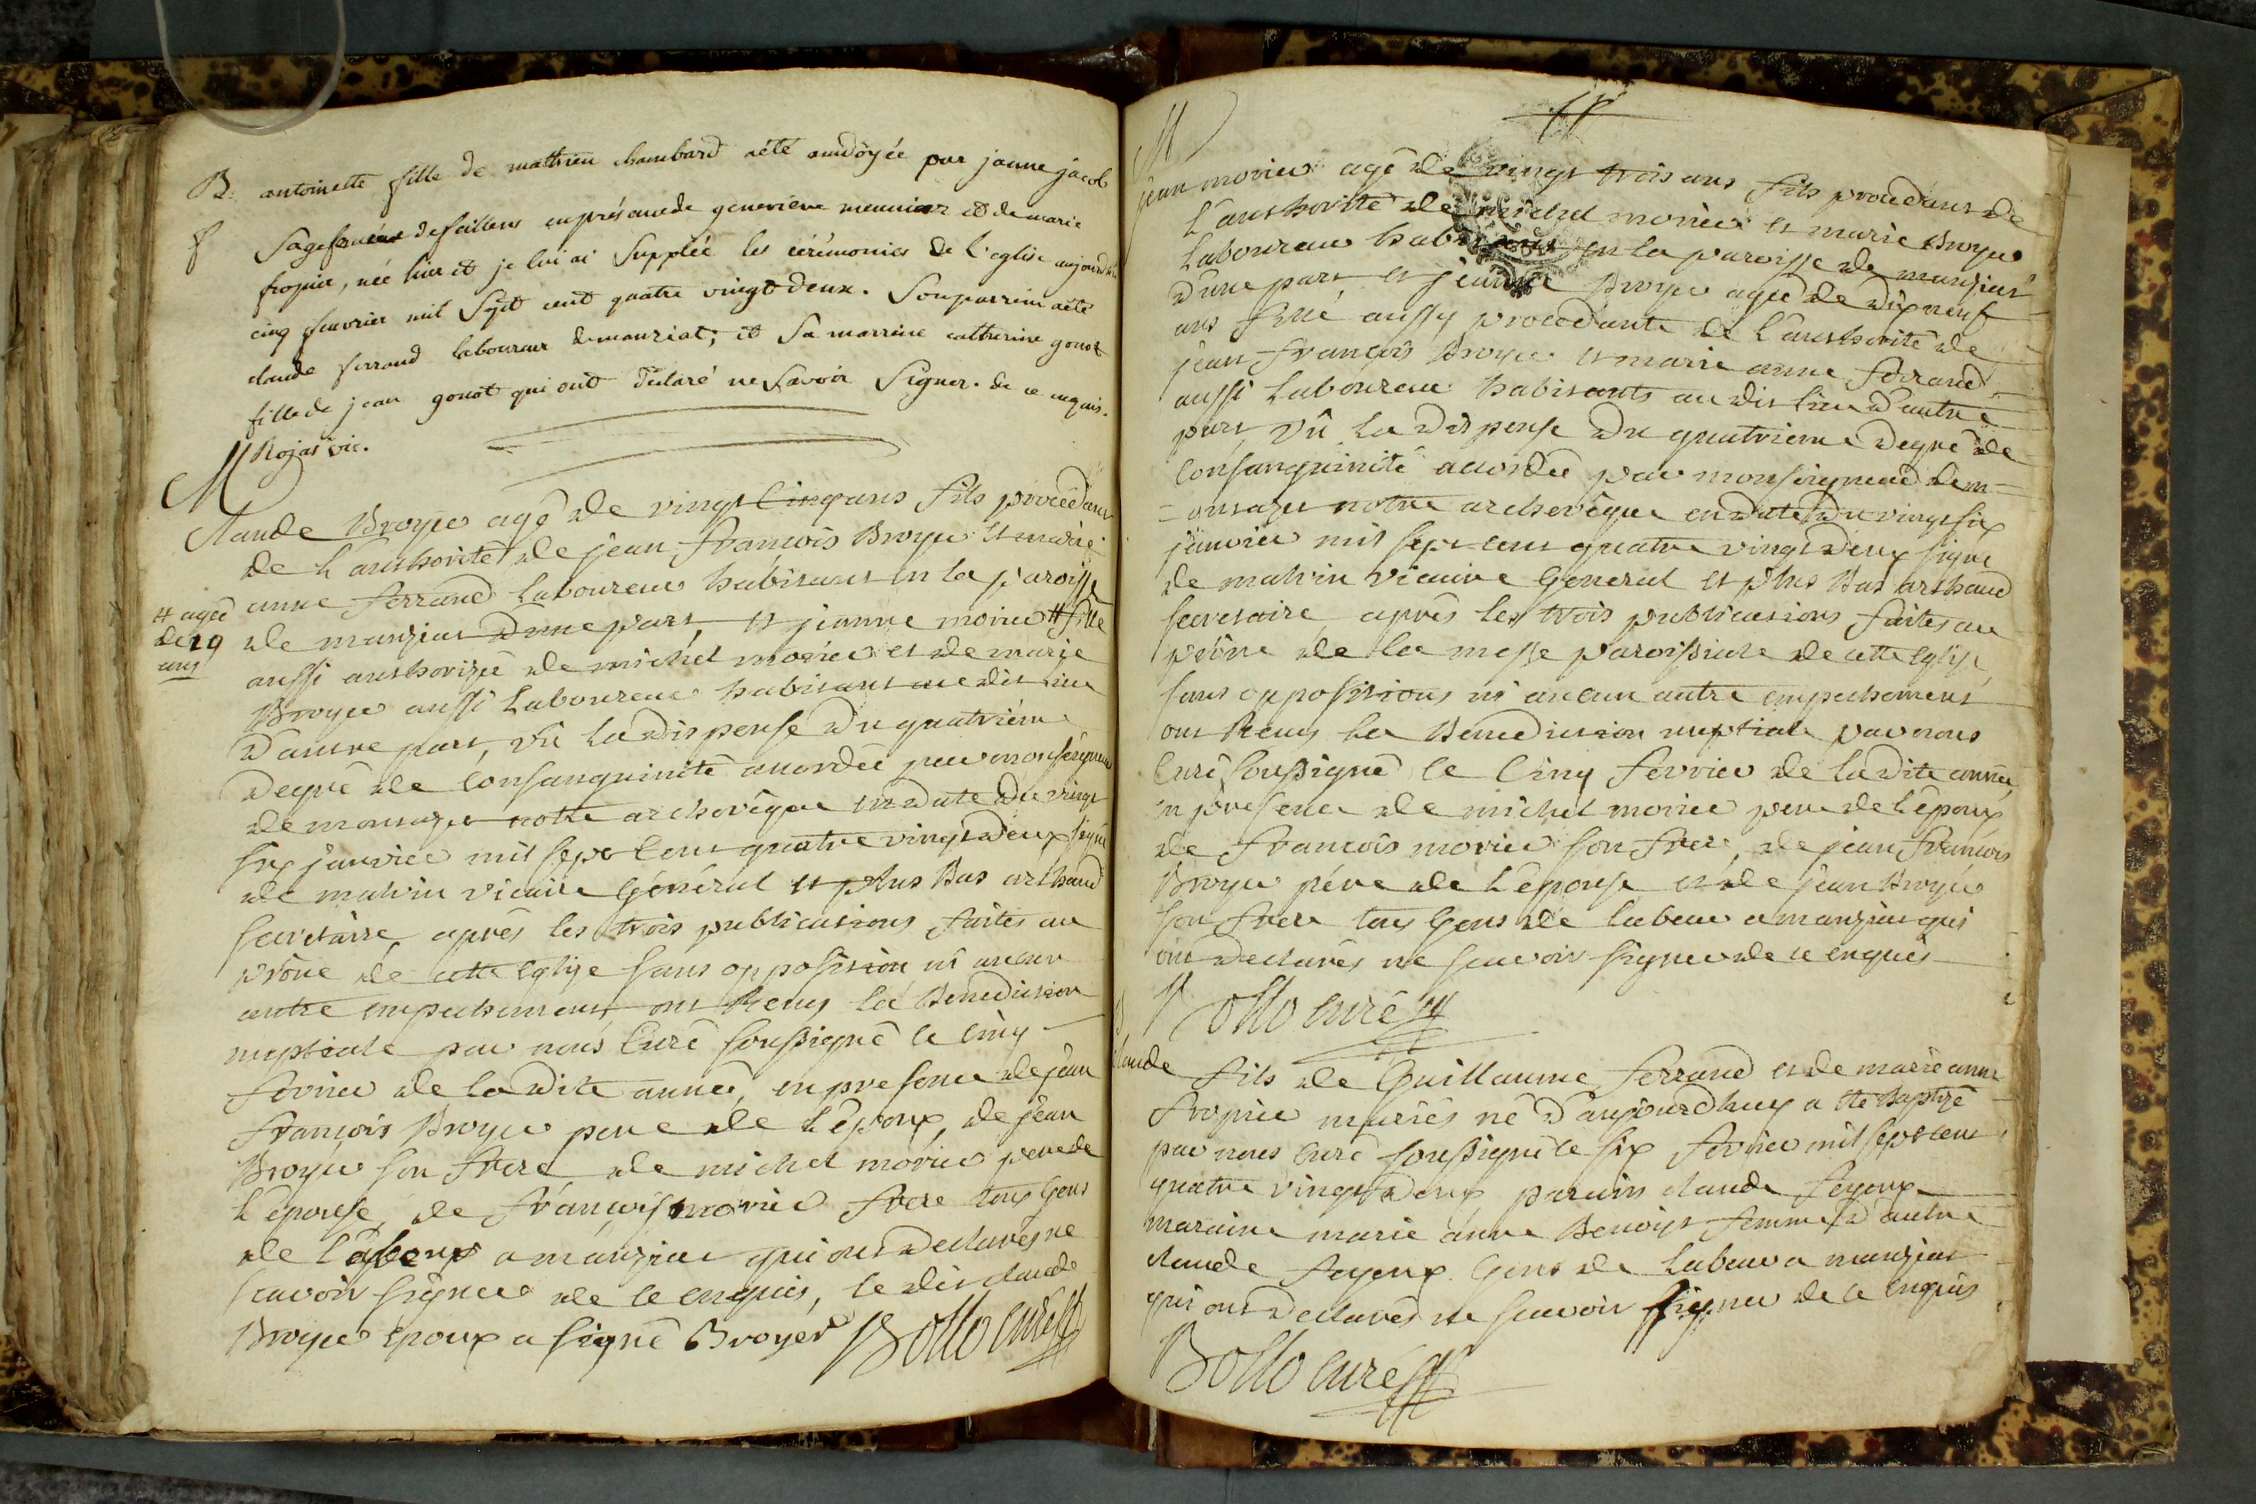 B. antoinette fille de mathieu chambard aété ondoyée par janne jacob
f sagefemme defaillens enprésencede geneviève meunier et de marie
fropier, née hier et je lui ai Supplée les cérémonies de L'eglise aujourdhui
cinq feuvrier mil Sept cent quatre vingt deux. Sonparrein aété
claude ferrand laboureur demanziat; et Sa marreine catherine gonot
fille de jean gonot qui ont déclaré ne Savoir Signer. de ce enquis.
Rojat vic.
M
Claude Broyer agé de vingt Cinq ans fils procedant
de L'authorité de jean françois Broyer et marie
anne ferrand Laboureur habitant en la paroisse
de manziat d'une part, et jeanne morier # fille
# agée
de 19
ans
aussi authorizée de michel morier et de marie
Broyer aussi Laboureur habitant au dit lieu
d'autre part, vû la dispense du quatrième
degré de Consanguinité accordée par monseigneur
de montazet notre archevêque en date du vingt
six janvier mil sept Cent quatre vingt deux signé
de malvin vicaire Général et plus Bas arthaud
secretaire, après les trois publications faites au
prône de cette Eglise sans opposition ni aucun
autre empechement ont Reçus la Benediction
nuptiale par nous Curé soussigné le Cinq
fevrier de la dite année, en presence de jean
françois Broyer pere de L'époux, de jean
Broyer son frere de michel morier pere de
L'épouse, de françois morier frere tous Gens
de Labeur a manziat qui ont declarés ne
scavoir signer de ce enquis, le dit claude
Broyer epoux a signé Broyer Bollo curé
M
jean morier agé de vingt trois ans fils procedant de
L'authorité de michel morier et marie Broyer
Laboureur habitant en la paroisse de manziat
d'une part et jeanne Broyer agée de dix neuf
ans fille aussy procedante de L'authorité de
jean françois Broyer et marie anne ferrand
aussi Laboureur habitants au dit lieu d'autre
part, vû la dispense du quatrieme degré de
Consanguinité accordée par monseigneur de m=
=ontazet notre archevêque en date du vingt six
janvier mil sept cent quatre vingt deux signé
de malvin vicaire General et plus Bas arthaud
secretaire après les trois publications faites au
prône de la messe paroissiale de cette Eglise
sans oppositions ni aucun autre empechement
ont Reçus la Benediction nuptiale par nous
Curé soussigné le Cinq fevrier de la dite année,
en presence de michel morier pere de L'époux
de françois morier son frere, de jean françois
Broyer pére de L'épouse et de jean Broyer
son frere tous Gens de labeur a manziat qui
ont declarés ne scavoir signer de ce enquis
Bollo curé
B
Claude fils de Guillaume ferrand et de marie anne
fropier mariés né d'aujourdhuy a été Baptizé
par nous Curé soussigné le six fevrier mil sept cent
quatre vingt deux parain claude feyeux
maraine marie anne Benoist femme d'autre
claude feyeux Gens de Labeur a manziat
qui ont declarés ne scavoir signer de ce enquis
Bollo curé